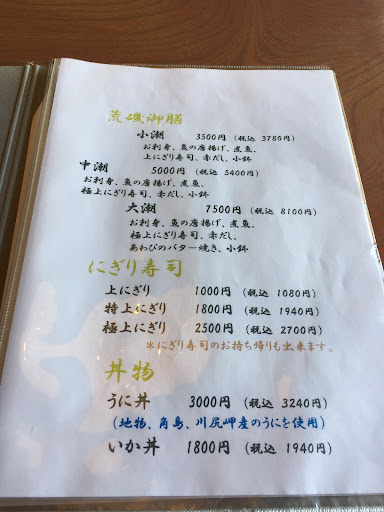 荒磯御膳
小潮 3500円 (税込 3780円)
お刺身、魚の唐揚げ、煮魚、
上にぎり寿司、赤だし、小鉢
中潮 5000円 (税込 5400円)
お刺身、魚の唐揚げ、煮魚、
極上にぎり寿司、赤だし、小鉢
大潮 7500円 (税込 8100円)
お刺身、魚の唐揚げ、煮魚、
極上にぎり寿司、赤だし、
あわびのバター焼き、小鉢
にぎり寿司
上にぎり 1000円 (税込 1080円)
特上にぎり 1800円 (税込 1940円)
極上にぎり 2500円 (税込 2700円)
*にぎり寿司のお持ち帰りも出来ます。
丼物
うに丼 3000円 (税込 3240円)
(地物、角島、川尻岬産のうにを使用)
いか丼 1800円 (税込 1940円)